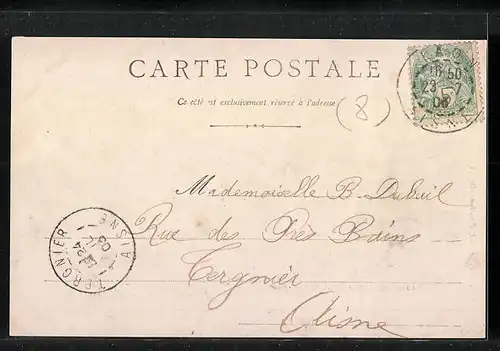 CARTE POSTALE
Ce côté est exclusivement réservé à l'adresse
(8)
16 50
23 7
5
Mademoiselle B. Dubuil
Rue des Près Bains
Tergnier
Aisne
TERGNIER
AISNE
24